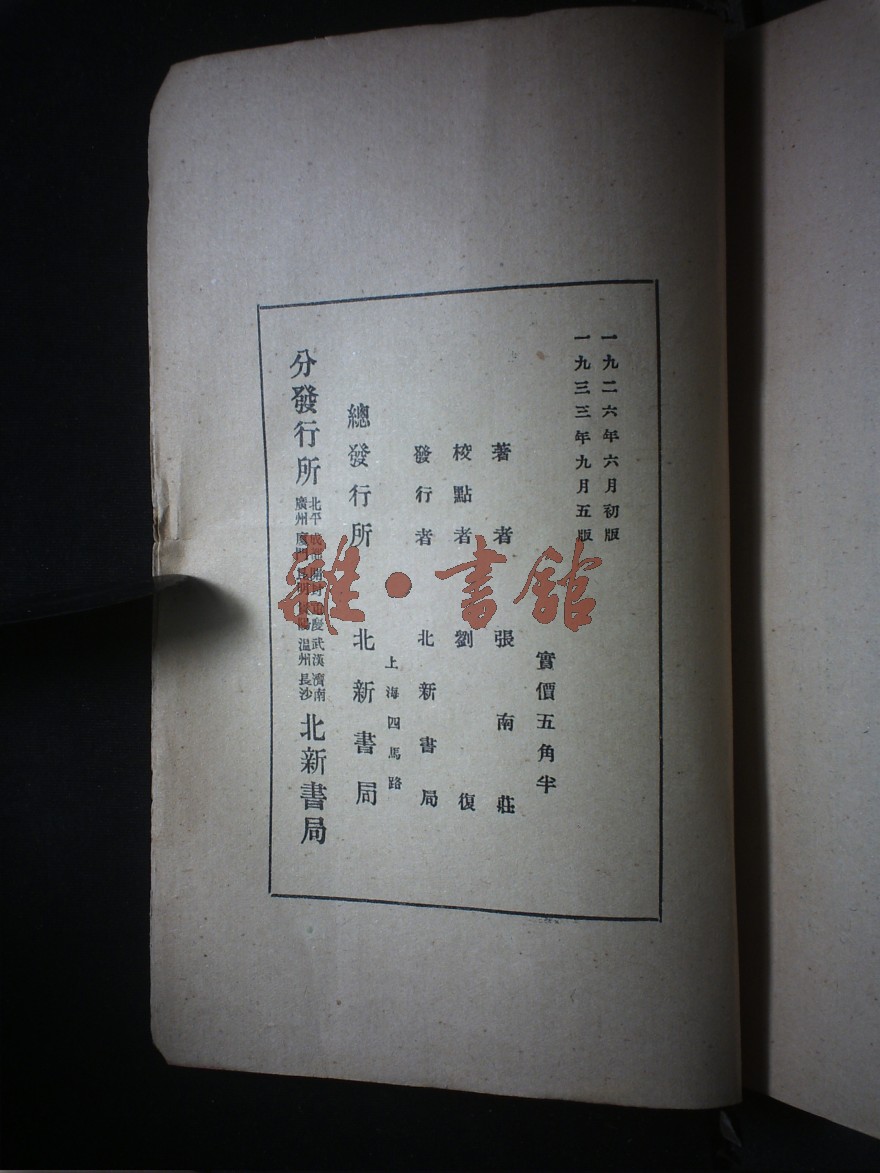 一九二六年六月初版
一九三三年九月五版
實價五角半
著者 張南莊
校點者 劉復
發行者 北新書局
上海四馬路
總發行所 北新書局
分發行所
北平 成都 開封 重慶 武漢 濟南
廣州 廈門 昆明 溫州 長沙
北新書局
雜·書館